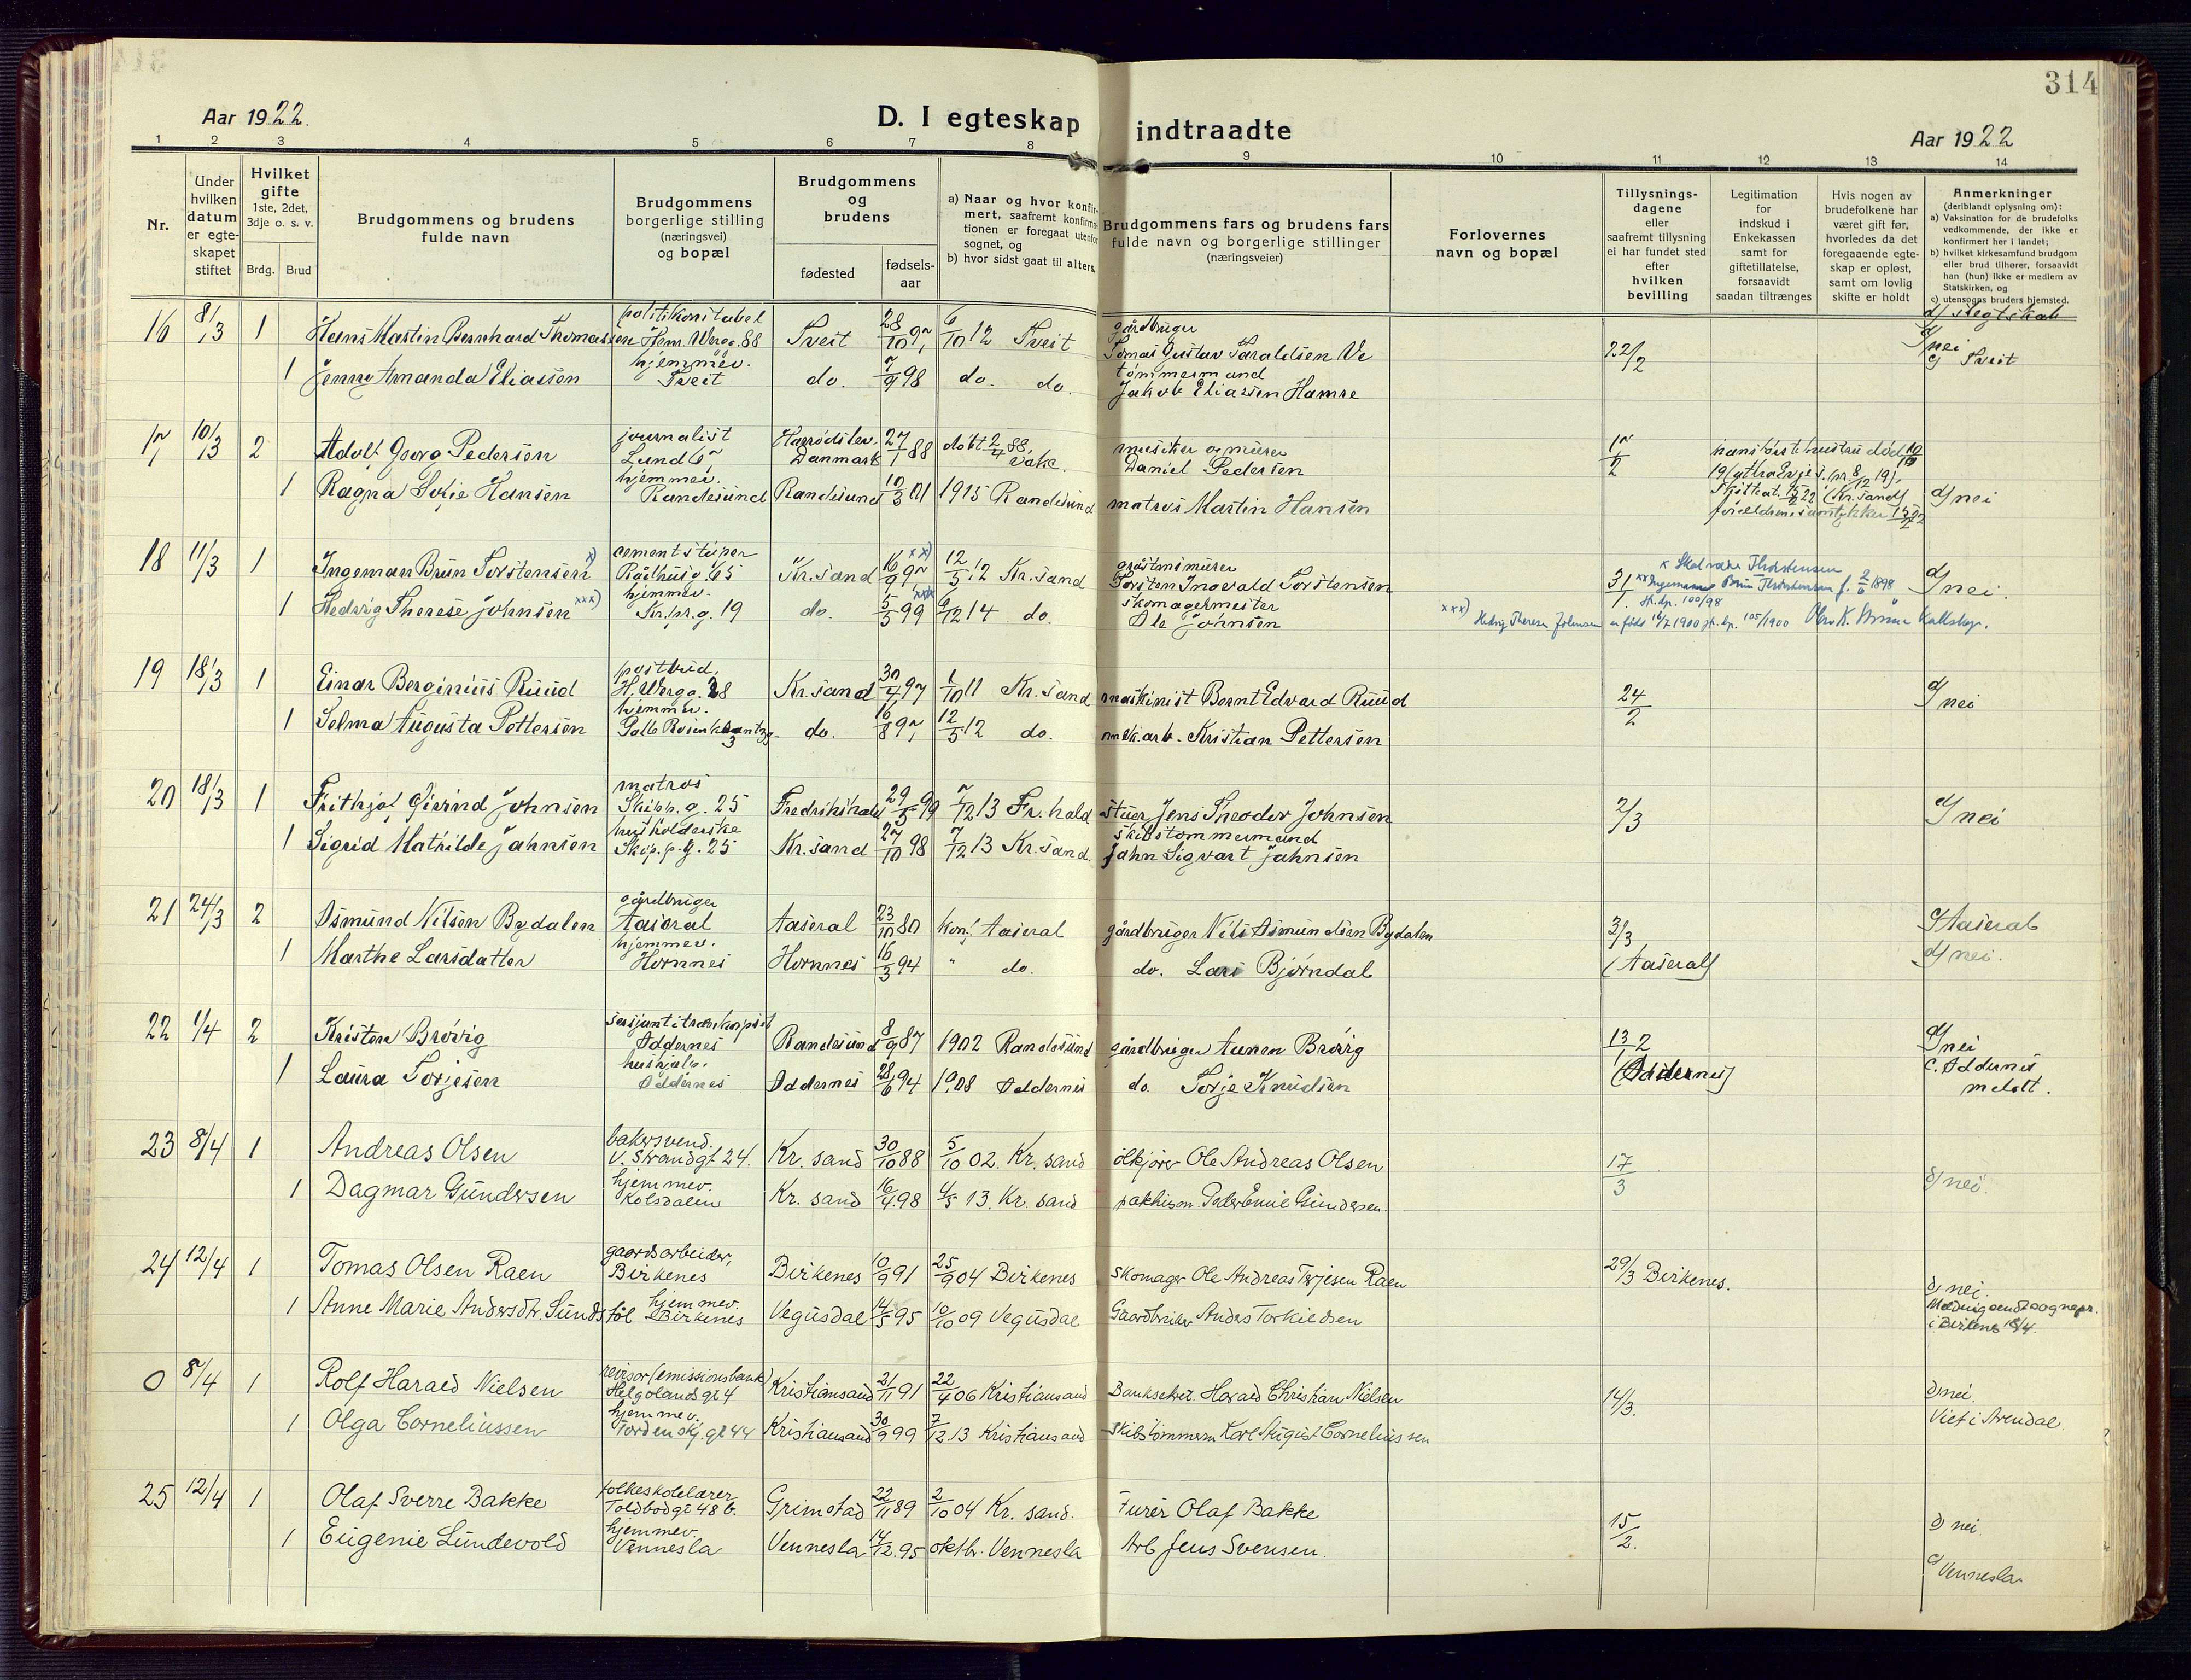 314
Aar 1922.
D. I egteskap indtraadte
Aar 1922
1 2 3 4 5 6 7 8 9 10 11 12 13 14
Nr.
Under hvilken datum er egteskapet stiftet
Hvilket gifte 1ste, 2det, 3dje o. s. v.
Brdg. Brud
Brudgommens og brudens fulde navn
Brudgommens borgerlige stilling (næringsvei) og bopæl
Brudgommens og brudens
fødested
fødselsaar
a) Naar og hvor konfirmert, saafremt konfirmationen er foregaat utenfor sognet, og
b) hvor sidst gaat til alters.
Brudgommens fars og brudens fars fulde navn og borgerlige stillinger (næringsveier)
Forlovernes navn og bopæl
Tillysningsdagene eller saafremt tillysning ei har fundet sted efter hvilken bevilling
Legitimation for indskud i Enkekassen samt for giftetillatelse, forsaavidt saadan tiltrænges
Hvis nogen av brudefolkene har været gift før, hvorledes da det foregaaende egteskap er opløst, samt om lovlig skifte er holdt
Anmerkninger
(deriblandt oplysning om):
a) Vaksination for de brudefolks vedkommende, der ikke er konfirmert her i landet;
b) hvilket kirkesamfund brudgom eller brud tilhører, forsaavidt han (hun) ikke er medlem av Statskirken, og
c) utensogns bruders hjemsted.
d) slegtskab
16 8/3 1 Hans Martin Bernhard Thomassen politikonstabel Henr. Werg.g. 88 Tveit 28/10 97 6/10 12 Tveit gårdbruger Tomas Gustav Taraldsen Ve 22/2 d) nei c) Tveit
1 Jenny Amanda Eliassen hjemmev. Tveit do. 7/9 98 do. do. tømmermand Jakob Eliassen Hamre
17 10/3 2 Adolf Georg Pedersen journalist Lund 67 Danmark 27/1 88 døbt 2/4 88, musiker og murer Daniel Pedersen 17/2 hans første hustru død
1 Ragna Sofie Hansen hjemmev. Randesund Randesund 10/3 01 1915 Randesund matros Martin Hansen d) nei
18 11/3 1 Ingeman Brun Torstensen x) cementstøper Rådhusg. 65 Kr.sand 16/9 97 xx) 12/5 12 Kr.sand gråstensmurer Torsten Ingevald Torstensen 31/1. d) nei.
x Skal være Thorstensen
xx Ingemann Brun Thorstensen f. 2/6 1898
100/98
1 Hedvig Therese Johnsen xxx) hjemmev. Kr.pr.g. 19 do. 5/5 99 xxx 6/12 14 do. skomagermester Ole Johnsen
xxx) Hedvig Therese Johnsen er født 16/7 1900 105/1900
19 18/3 1 Einar Berginius Ruud postbud, H. Werg.g. 28 Kr.sand 30/4 97 1/10 11 Kr.sand maskinist Bernt Edvard Ruud 24/2 d) nei
1 Selma Augusta Pettersen hjemmev. Palle Rosenkrantzg. 3 do. 16/8 97 12/5 12 do. mek.arb. Kristian Pettersen
20 18/3 1 Frithjof Øivind Johnsen matros Skipp.g. 25 Fredrikshald 29/5 99 7/12 13 Fr.hald stuer Jens Theodor Johnsen 2/3 d) nei
1 Sigrid Mathilde Jahnsen husholderske Skipp.g. 25 Kr.sand 27/10 98 7/12 13 Kr.sand. skibstømmermand Jahn Sigvart Jahnsen
21 24/3 2 Osmund Nilsen Bygdalen gårdbruger Aaseral Aaseral 23/10 80 konf. Aaseral gårdbruger Nils Osmundsen Bydalen 3/3 (Aaseral) c) Aaseral d) nei.
1 Marthe Larsdatter hjemmev. Hornnes Hornnes 16/3 94 " do. do. Lars Bjørndal
22 1/4 2 Kristen Brøvig Oddernes Randesund 8/9 87 1902 Randesund gårdbruger Aanen Brøvig 13/1 2 (Oddernes) d) nei c. Oddernes meldt.
1 Laura Torjesen hushjælp. Oddernes Oddernes 28/6 94 1908 Oddernes do. Torje Knudsen
23 8/4 1 Andreas Olsen bakersvend. V. Strandgt 24. Kr. sand 30/10 88 5/10 02. Kr. sand ølkjører Ole Andreas Olsen 17/3 d) nei.
1 Dagmar Gundersen hjemmev. Kolsdalen Kr. sand 16/4 98 4/5 13. Kr. sand pakhusm. Peder Emil Gundersen.
24 12/4 1 Tomas Olsen Raen gaardsarbeider, Birkenes Birkenes 10/9 91 25/9 04 Birkenes skomager Ole Andreas Terjesen Raen 29/3 Birkenes. d) nei.
Melding sendt sognepr. i Birkenes 18/4.
1 Anne Marie Andersdtr. Sundstøl hjemmev. Birkenes Vegusdal 14/5 95 10/10 09 Vegusdal Gaardbruker Anders Torkildsen
0 8/4 1 Rolf Harald Nielsen revisor (emissionsbank) Helgolandsgt 4 Kristiansand 21/11 91 22/4 06 Kristiansand Banksekr. Harald Christian Nielsen 14/3. d) nei. Viet i Arendal
1 Olga Corneliussen hjemmev. Tordenskj.gt 44 Kristiansand 30/9 99 7/12 13 Kristiansand Skibstømmerm Karl August Corneliussen
25 12/4 1 Olaf Sverre Bakke folkeskolelærer Toldbodgt 48 b. Grimstad 22/11 89 2/10 04 Kr. sand. Furér Olaf Bakke 15/2. d) nei.
1 Eugenie Lundevold hjemmev. Vennesla Vennesla 14/12 95 oktbr. Vennesla Arb Jens Svensen. c) Vennesla